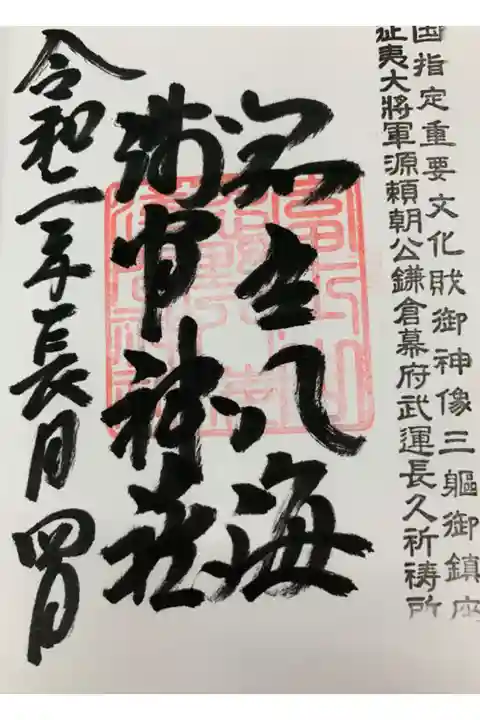 国指定重要文化財御神像三軀御鎮座
征夷大將軍源頼朝公鎌倉幕府武運長久祈祷所
八海
神社
令和二年長月四日